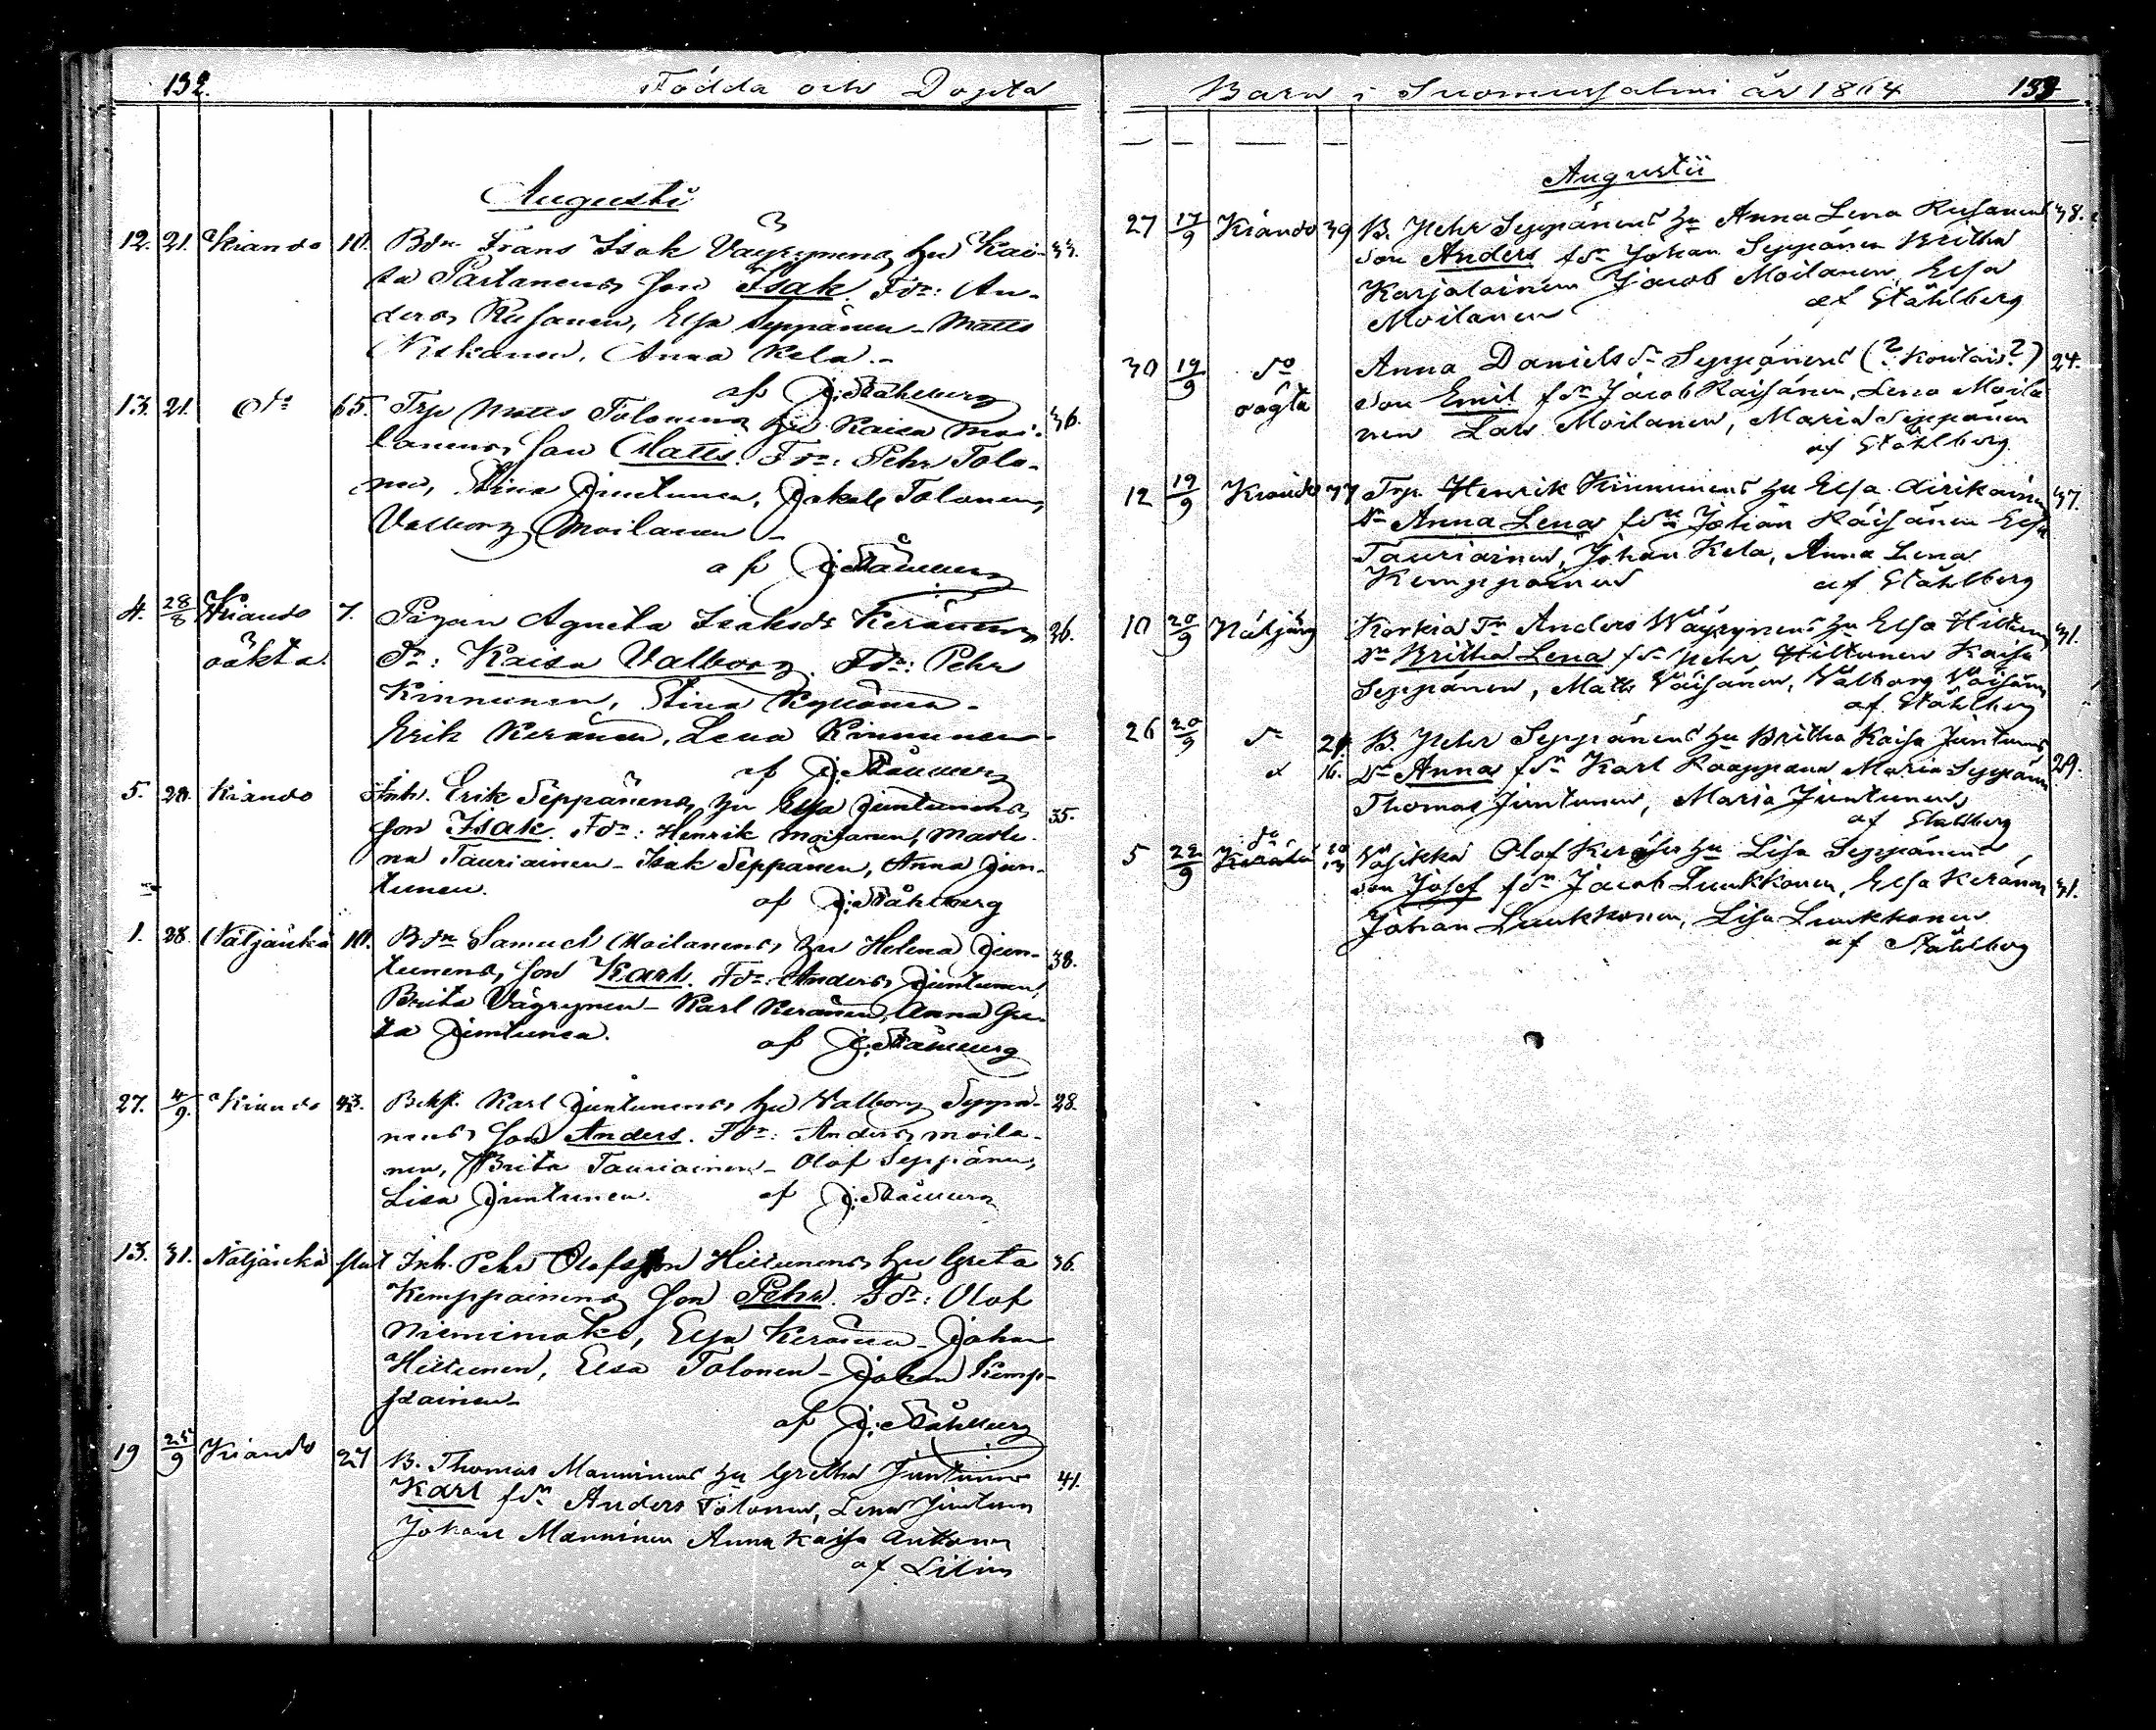 132. Födda och Döpta
Augusti
12. 21. Kiando 10. Bdn Frans Isak Väyrynens hu Kai- 33.
sa Partanens son Isak. Fdr: An-
ders Rusanen, Elsa Seppänen - Matts
Niskanen, Anna Kela.-
af J. Ståhlberg
13. 21. 65. Trp Matts Tolonens hu Kaisa Moi- 36.
lanens son Matts. Fdr: Pehr Tolo-
nen, Stina Juntunen, Tolonen,
Valborg Moilanen -
af J. Ståhlberg
4. 28/8 Kiando 7. Pigan Agneta Isaksdr Keränens 26.
oäkta. Dr: Kaisa Valborg. Fdr: Pehr
Kinnunen, Stina Kyllönen -
Erik Keränen, Lena Kinnunen
af J. Ståhlberg
5. 28. Kiando Inh. Erik Seppänens hu Elsa Juntunens 35.
son Isak. Fdr: Henrik Moilanen,
na Tauriainen - Isak Seppänen, Anna Jun-
tunen. af J. Ståhlberg
1. 28. Näljänkä 10. Bdn Samuel Moilanens hu Helena Jun- 38.
tunens son Karl. Fdr: Anders Juntunen,
Brita Väyrynen - Karl Keränen, Anna Gre-
ta Juntunen. af J. Ståhlberg
27. 4/9. Kiando 43. Karl Juntunens hu Valborg Seppä- 28.
nens son Anders. Fdr: Anders Moila-
nen, Brita Tauriainen - Olof Seppänen,
Lisa Juntunen. af J. Ståhlberg
13. 31. Näljänkä Inh. Pehr Olofsson Hiltunens hu Greta 36.
Kemppainens son Pehr. Fdr: Olof
Niemimäki, Elsa Keränen - Johan
Hiltunen, Elsa Tolonen - Johan Kemp-
painen -
af J. Ståhlberg
19 25/9 Kiando 27 B. Thomas Manninens hu Gretha Juntunens 41.
Karl fdr Anders Tolonen, Lena Juntunen
Johan Manninen Anna Kaisa
af Lilius
Barn i Suomussalmi år 1864 133
Augustii
27 17/9 Kiando 39 B. Pehr Seppänens hu Anna Lena Rusanens 38.
son Anders fdr Johan Seppänen Britha
Karjalainen Jacob Moilanen Elsa
Moilanen af Ståhlberg
30 19/9 do Anna Daniels dr Seppänens (? ?) 24.
oägta son Emil fdr Jacob Räisänen, Lena Moila
nen Lars Moilanen, Maria Seppänen
af Ståhlberg
12 19/9 Kiando 37 Trp Henrik Kinnunens hu Elsa 37.
dr Anna Lena fdr Johan Räisänen Elsa
Tauriainen, Johan Kela, Anna Lena
Kemppainen af Ståhlberg
10 20/9 Näljäng Anders Wäyrynens hu Elsa Hiltunens 31.
dr Britha Lena fdr Pehr Hiltunen Kaisa
Seppänen, Matts Väisänen, Valborg Väisänen
af Ståhlberg
26 20/9 do B. Pehr Seppänens hu Britha Kaisa Juntunens
16. dr Anna fdr Karl Maria Seppänen 29.
Thomas Juntunen, Maria Juntunen
af Ståhlberg
5 22/9 do Olof Keräsen hu Lisa Seppänens
son Josef fdr Jacob Luukkonen, Elsa Keränen 31.
Johan Luukkonen, Lisa Luukkonen
af Ståhlberg